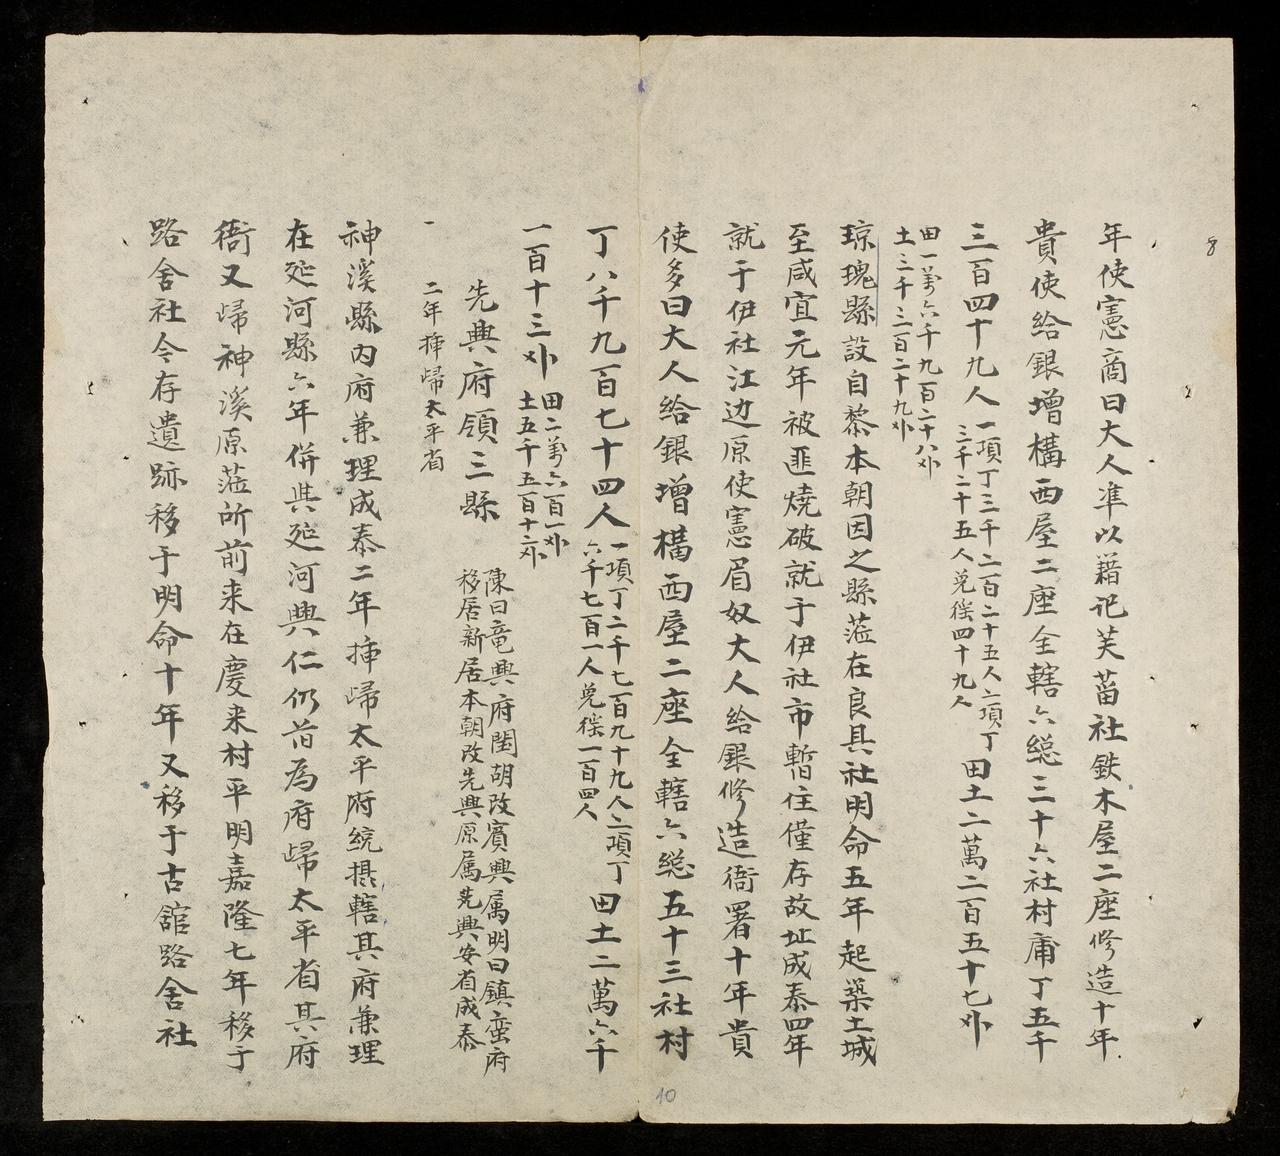 8
年使憲商曰大人准以籍记芙蒥社鉄木屋二座修造十年
貴使给銀增構西屋二座全轄六総三十六社村庯丁五千
三百四十九人
一項丁三千二百二十五人二項丁
三千二十五人免徭四十九人
田土二萬二百五十七外
田一萬六千九百二十八外
土三千三百二十九外
琼瑰縣設自黎本朝因之縣蒞在良具社明命五年起築土城
至咸宜元年被匪燒破就于伊社市暫住僅存故址成泰四年
就于伊社江边原使憲眉奴大人给銀修造衙署十年貴
使多曰大人给銀增構西屋二座全轄六総五十三社村
丁八千九百七十四人
一項丁二千七百九十九人二項丁
六千七百一人免徭一百四人
田土二萬六千
一百十三外
田二萬六百一外
土五千五百十二外
先興府領三縣
陳曰竜興府閏胡改賓興属明曰鎮蛮府
移居新居本朝改先興原属羌興安省成泰
一
二年揷帰太平省
神溪縣内府兼理成泰二年揷帰太平府統摂轄其府兼理
在延河縣六年併其延河興仁仍前為府帰太平省其府
衙又帰神溪原蒞所前来在慶来村平明嘉隆七年移于
路舍社令存遺跡移于明命十年又移于古舘路舍社
10